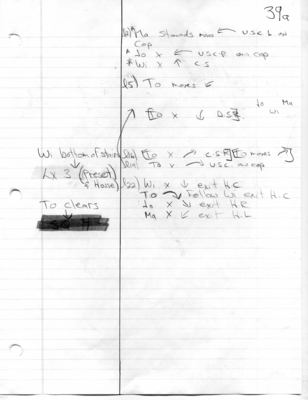 39a
b) Ma Stands moves ← U.S.C L. on
Cap
* Jo x ← U.S.C.R on cap
* Wi x ↑ C S
15) To moves
To x ↓ D.S.
Jo Ma
Wi
Wi bottom of stairs
Lx 3 (Preset)
& House)
To clears
To x → C.S. [To moves]
To x → U.S.C. on cap
22) Wi x ↓ exit H.C
To Follow Wi exit H.C
Jo x ↘ exit H.R
Ma x ↙ exit H.L